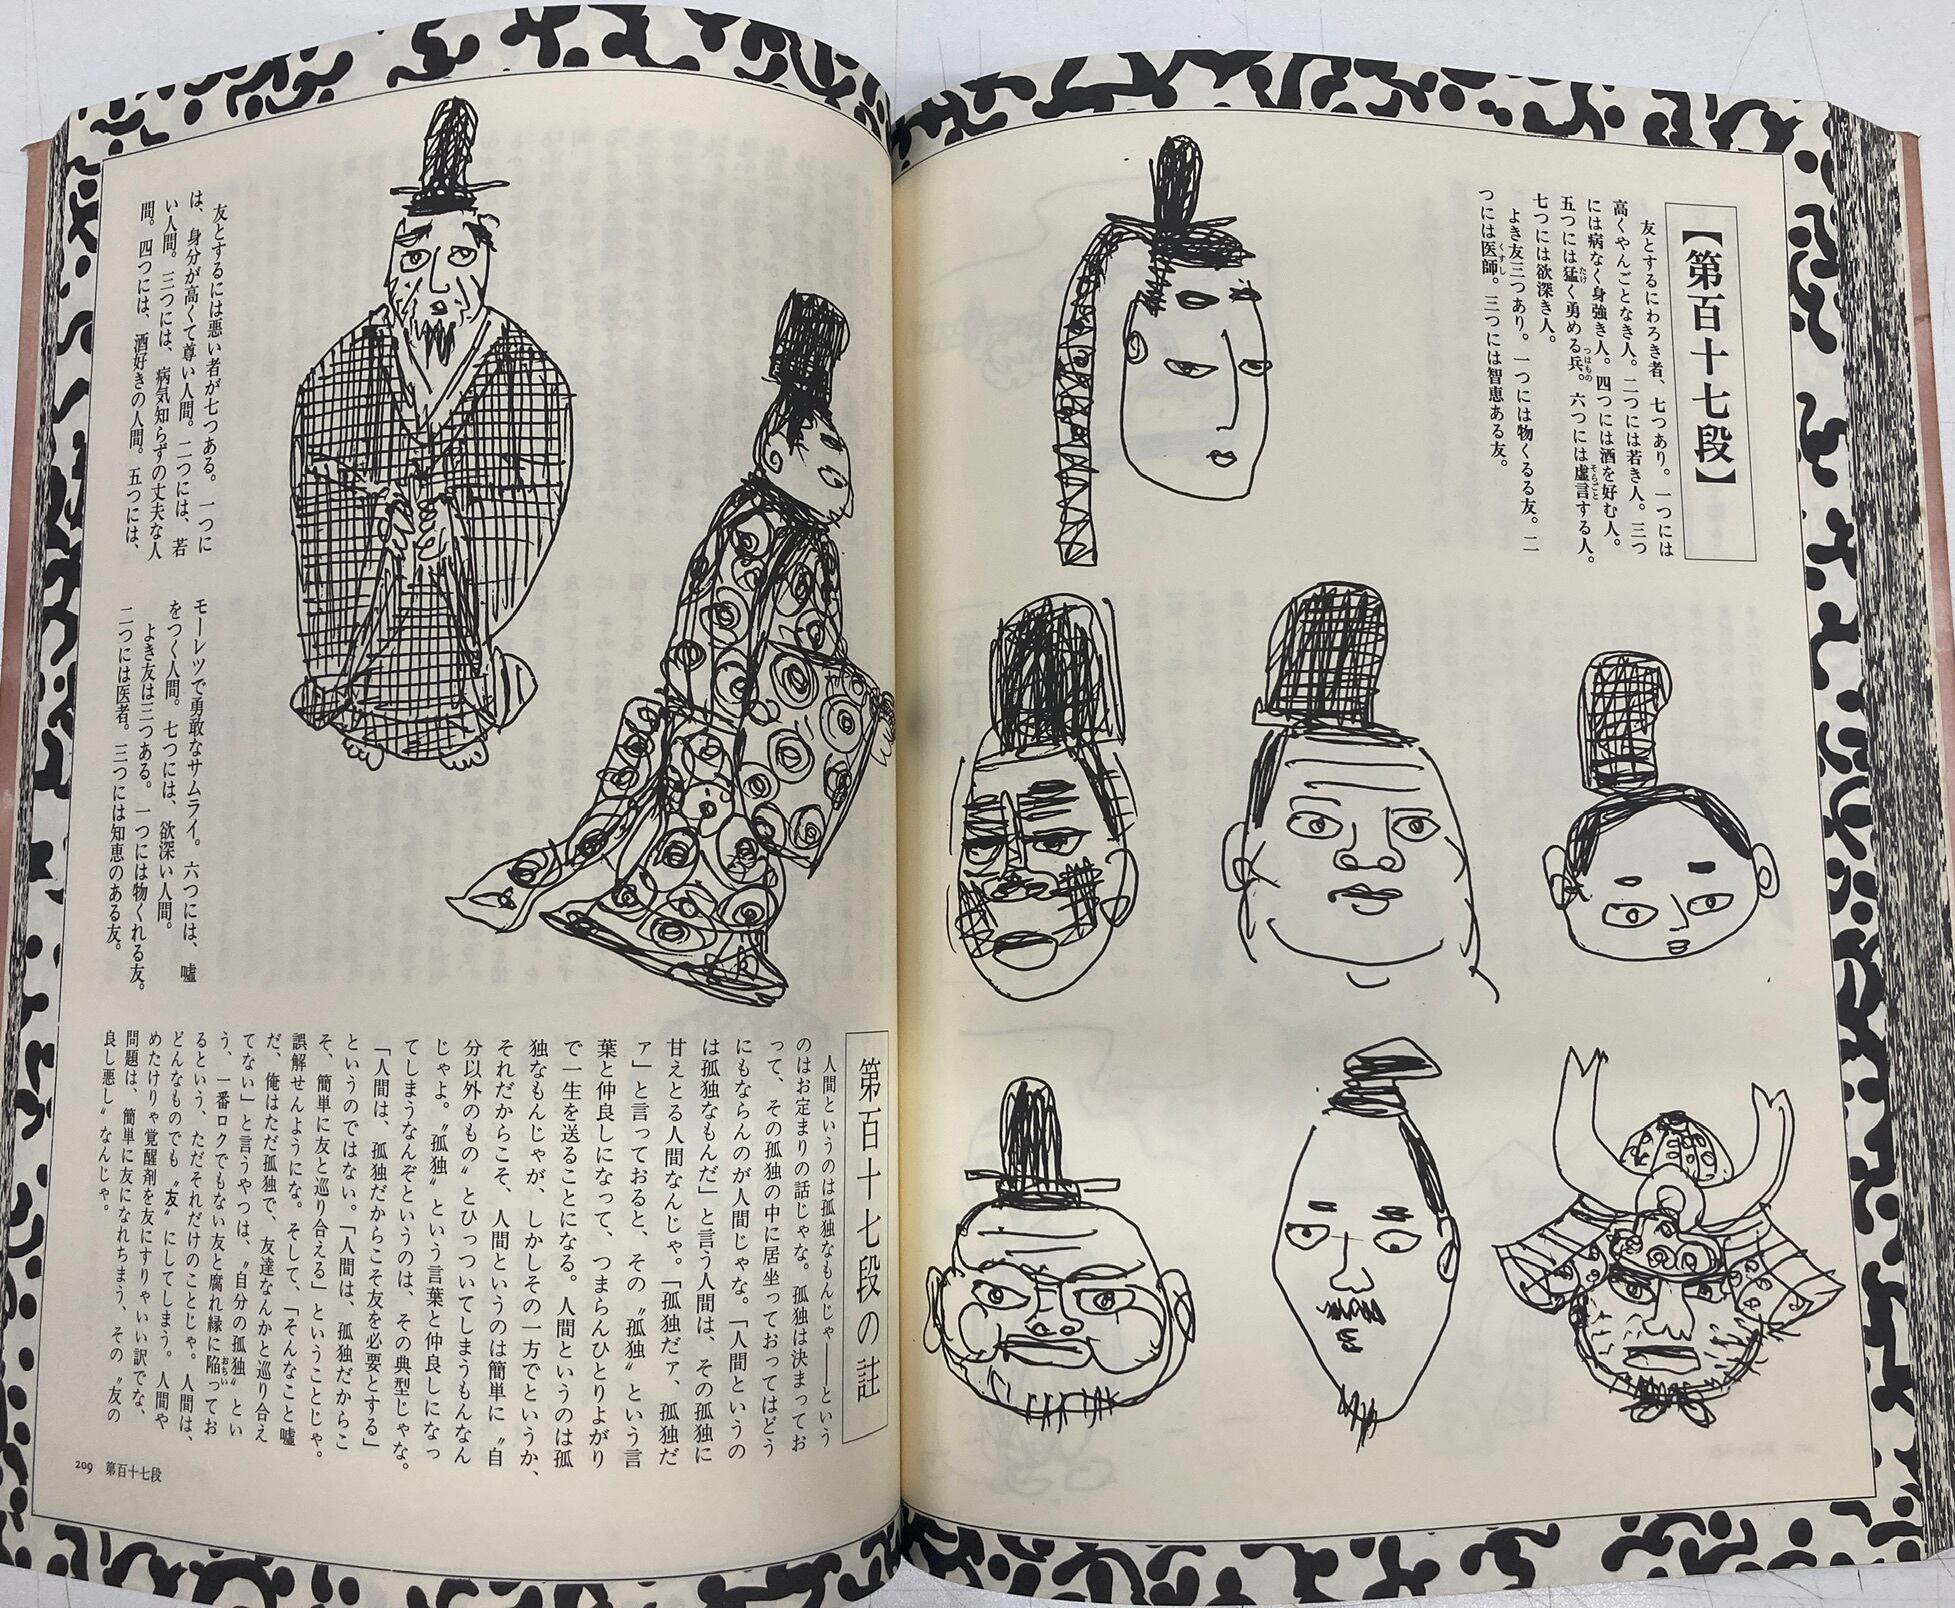 【第百十七段】
友とするにわろき者、七つあり。一つには
高くやんごとなき人。二つには若き人。三つ
には病なく身強き人。四つには酒を好む人。
五つには猛く勇める兵。六つには虚言する人。
たけ
つはもの
そらごと
七つには欲深き人。
よき友三つあり。一つには物くるる友。二
つには医師。三つには智恵ある友。
くすし
友とするには悪い者が七つある。一つに
は、身分が高くて尊い人間。二つには、若
い人間。三つには、病気知らずの丈夫な人
間。四つには、酒好きの人間。五つには、
モーレツで勇敢なサムライ。六つには、嘘
をつく人間。七つには、欲深い人間。
よき友は三つある。一つには物くれる友。
二つには医者。三つには知恵のある友。
第百十七段の註
人間というのは孤独なもんじゃ――という
のはお定まりの話じゃな。孤独は決まってお
って、その孤独の中に居坐っておってはどう
にもならんのが人間じゃな。「人間というの
は孤独なもんだ」と言う人間は、その孤独に
甘えとる人間なんじゃ。「孤独だァ、孤独だ
ァ」と言っておると、その〝孤独〟という言
葉と仲良しになって、つまらんひとりよがり
で一生を送ることになる。人間というのは孤
独なもんじゃが、しかしその一方でというか、
それだからこそ、人間というのは簡単に〝自
分以外のもの〟とひっついてしまうもんなん
じゃよ。〝孤独〟という言葉と仲良しになっ
てしまうなんぞというのは、その典型じゃな。
「人間は、孤独だからこそ友を必要とする」
というのではない。「人間は、孤独だからこ
そ、簡単に友と巡り合える」ということじゃ。
誤解せんようにな。そして、「そんなこと嘘
だ、俺はただ孤独で、友達なんかと巡り合え
てない」と言うやつは、〝自分の孤独〟とい
う、一番ロクでもない友と腐れ縁に陥ってお
おちい
るという、ただそれだけのことじゃ。人間は、
どんなものでも〝友〟にしてしまう。人間や
めたけりゃ覚醒剤を友にすりゃいい訳でな、
問題は、簡単に友になれちまう、その〝友の
良し悪し〟なんじゃ。
209 第百十七段